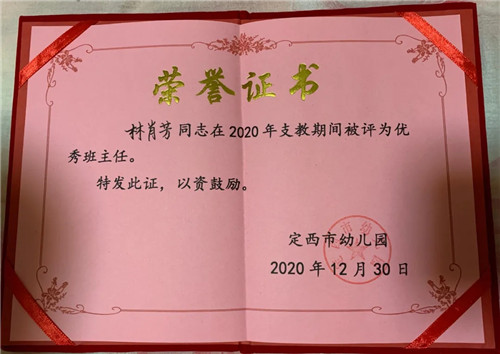 荣誉证书
林肖芳同志在2020年支教期间被评为优
秀班主任。
特发此证，以资鼓励。
定西市幼儿园
2020年12月30日